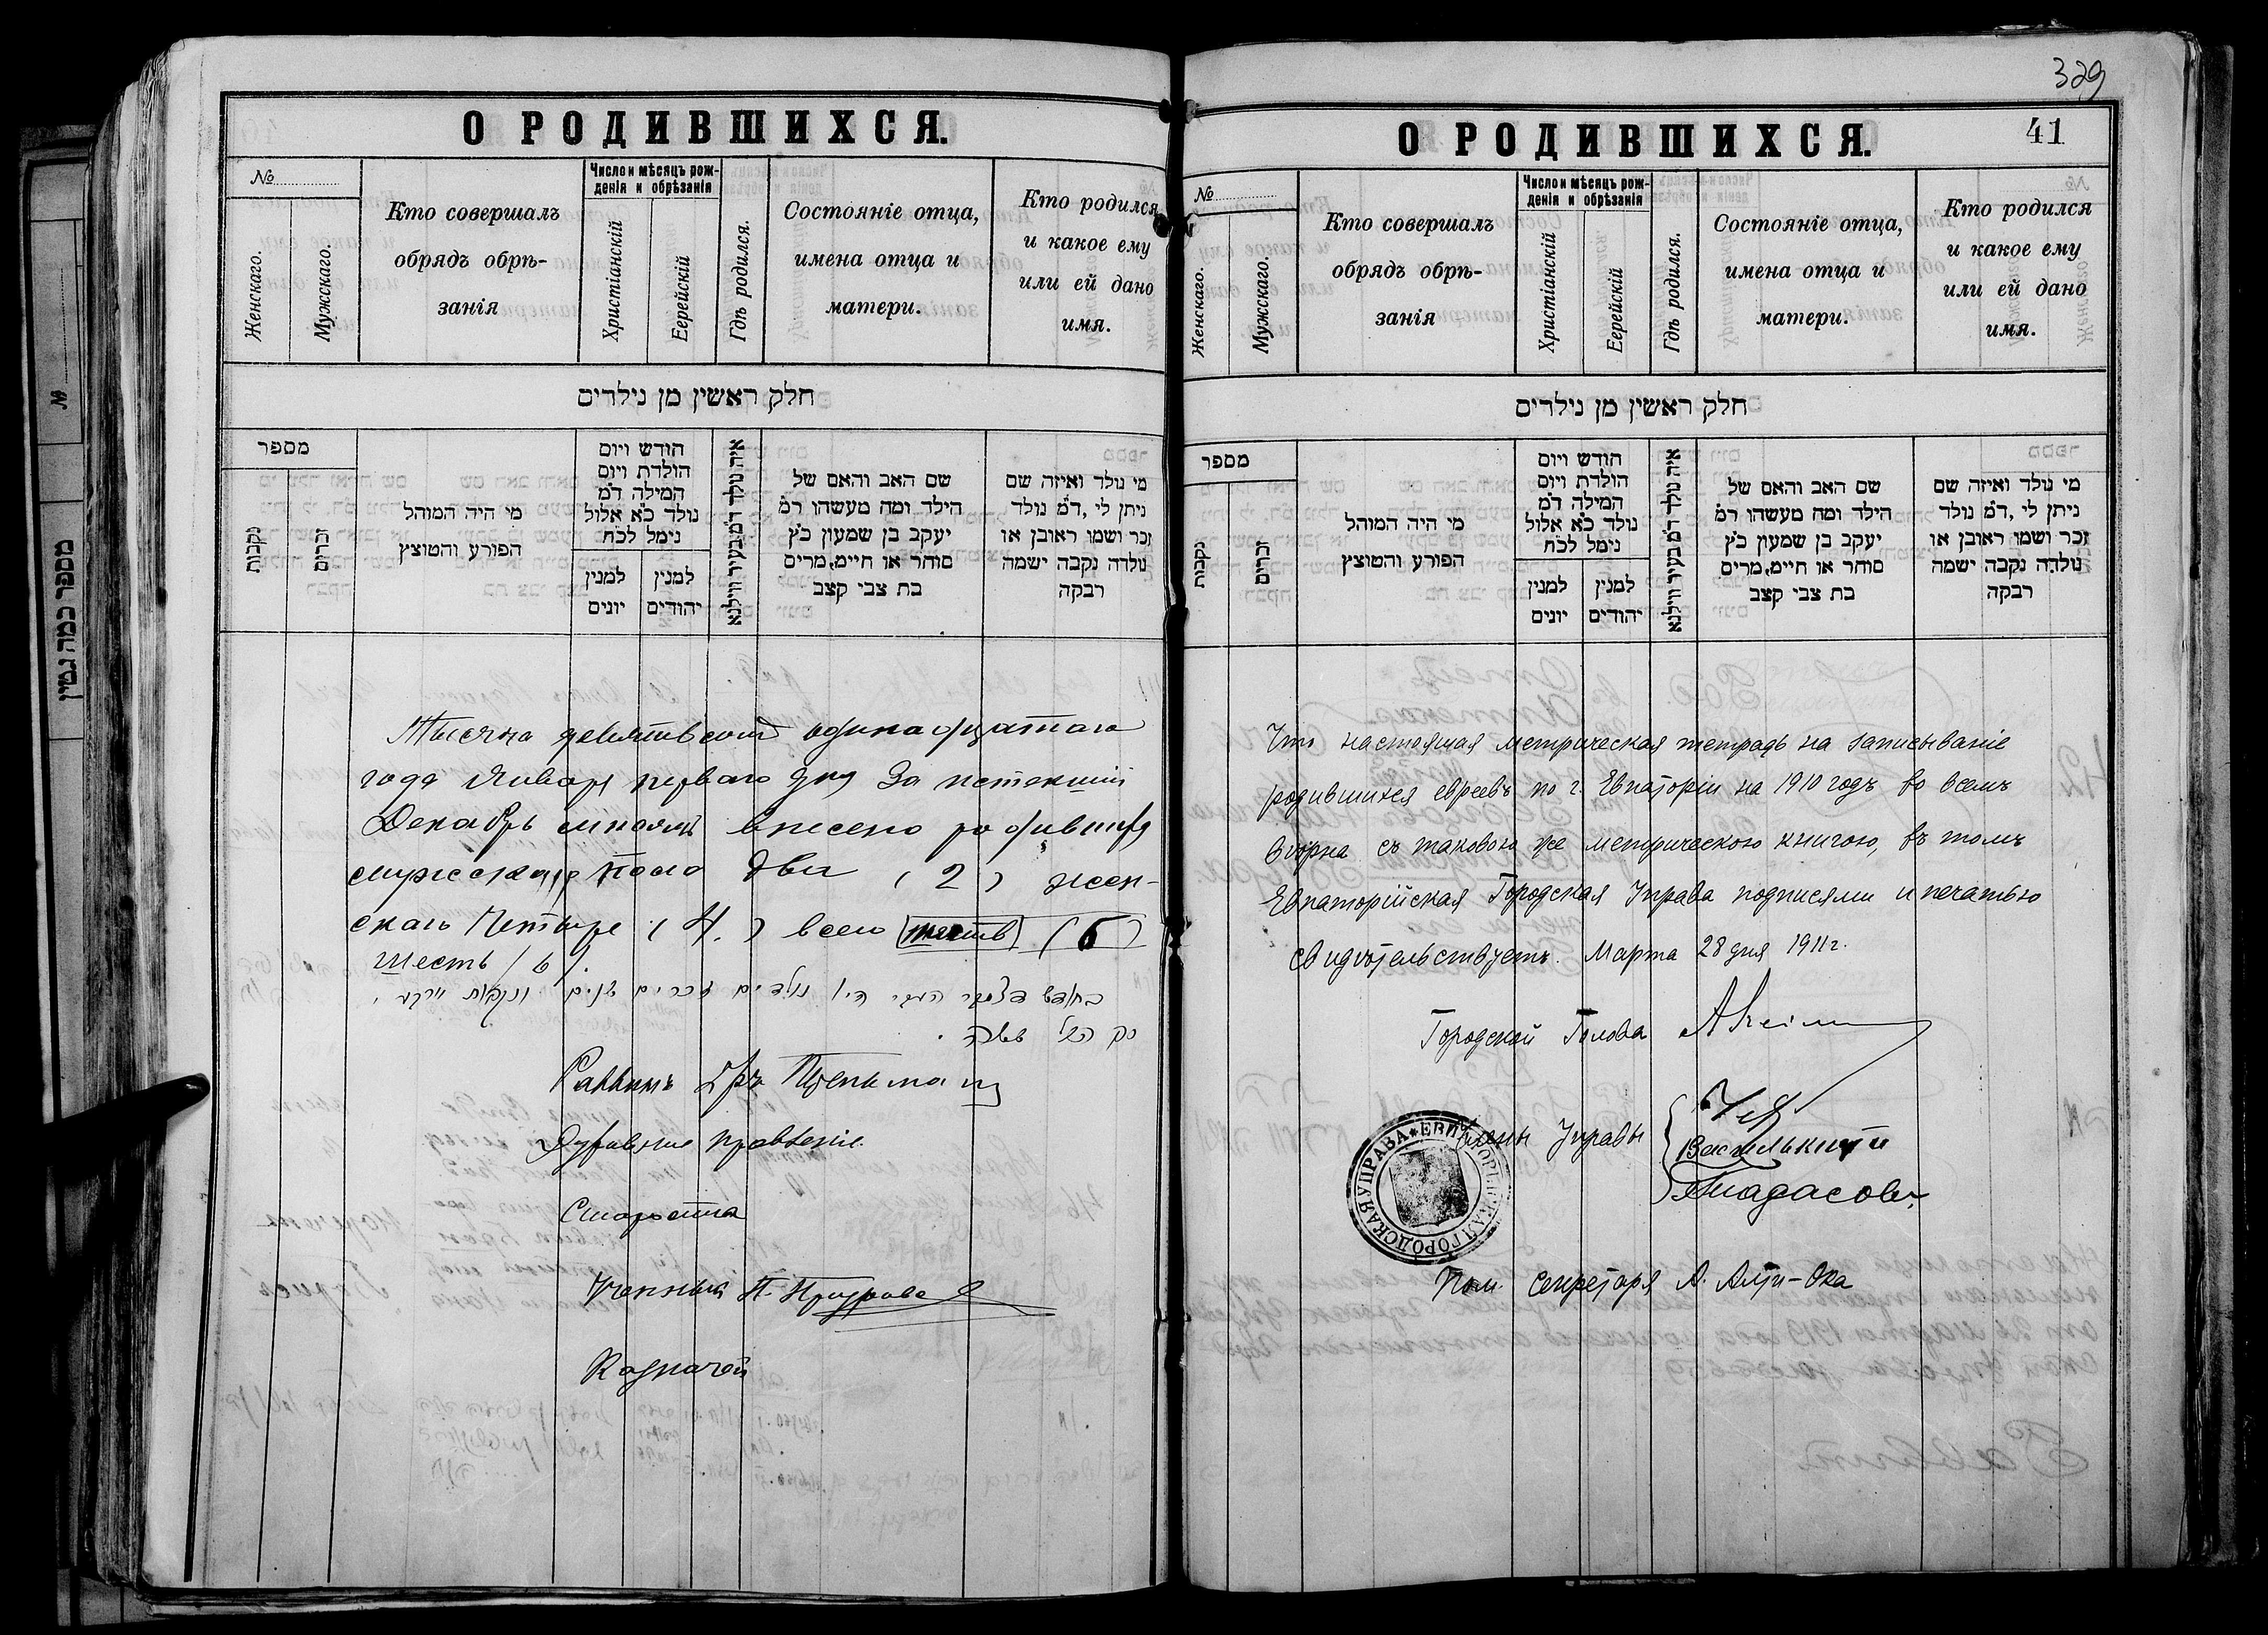 О РОДИВШИХСЯ.
№
Женскаго.
Мужскаго.
Кто совершалъ
обрядъ обрѣ-
занія
Число и мѣсяцъ рож-
денія и обрѣзанія
Христіанскій
Еерейскій
Гдѣ родился.
Состояніе отца,
имена отца и
матери.
Кто родился
и какое ему
или ей дано
имя.
חלק ראשין מן נילדים
מספר
נקבות
זכרים
מי היה המוהל
הפורע והטוצץ
חודש ויום
הולדת ויום
המילה דמ
נולד כא אלול
נימל לכח
למנין
יונים
למנין
יהודים
איה נולד דמ בעיר ווילנא
שם האב והאם של
הילד ומה מעשהו רמ
יעקב בן שמעון כץ
סוחר או חיימ, מרים
בת צבי קצב
מי נולד ואיזה שם
ניתן לי, דמ נולד
זכר ושמו ראובן או
נולדה נקבה ישמה
רבקה
Тысяча девятьсотъ одинадцатаго
года Января перваго дня За истекшій
Декабрь мѣсяцъ внесено родившихся
мужскаго пола два (2) жен-
скаго Четыре (4.) всего шесть (6)
шесть (6).
נולדים זכרים שנים ונקבות
סך הכל ששה.
Раввинъ Д-ръ
Духовное правленіе
Староста
Ученный П.
Казначей
329
О РОДИВШИХСЯ.
41
№
Женскаго.
Мужскаго.
Кто совершалъ
обрядъ обрѣ-
занія
Число и мѣсяцъ рож-
денія и обрѣзанія
Христіанскій
Еерейскій
Гдѣ родился.
Состояніе отца,
имена отца и
матери.
Кто родился
и какое ему
или ей дано
имя.
חלק ראשין מן נילדים
מספר
נקבות
זכרים
מי היה המוהל
הפורע והטוצץ
חודש ויום
הולדת ויום
המילה דמ
נולד כא אלול
נימל לכח
למנין
יונים
למנין
יהודים
איה נולד דמ בעיר ווילנא
שם האב והאם של
הילד ומה מעשהו רמ
יעקב בן שמעון כץ
סוחר או חיימ, מרים
בת צבי קצב
מי נולד ואיזה שם
ניתן לי, דמ נולד
זכר ושמו ראובן או
נולדה נקבה ישמה
רבקה
Что настоящая метрическая тетрадь на записываніе
родившихся евреевъ по г. Евпаторіи на 1910 годъ во всемъ
вѣрна съ таковою же метрическою книгою, въ томъ
Евпаторійская Городская Управа подписями и печатью
свидѣтельствуетъ. Марта 28 дня 1911 г.
Городской Голова
Члены Управы
ЕВПАТОРІЙСКАЯ ГОРОДСКАЯ УПРАВА
Пом. Секретаря А.
מספר כמה גטין
№